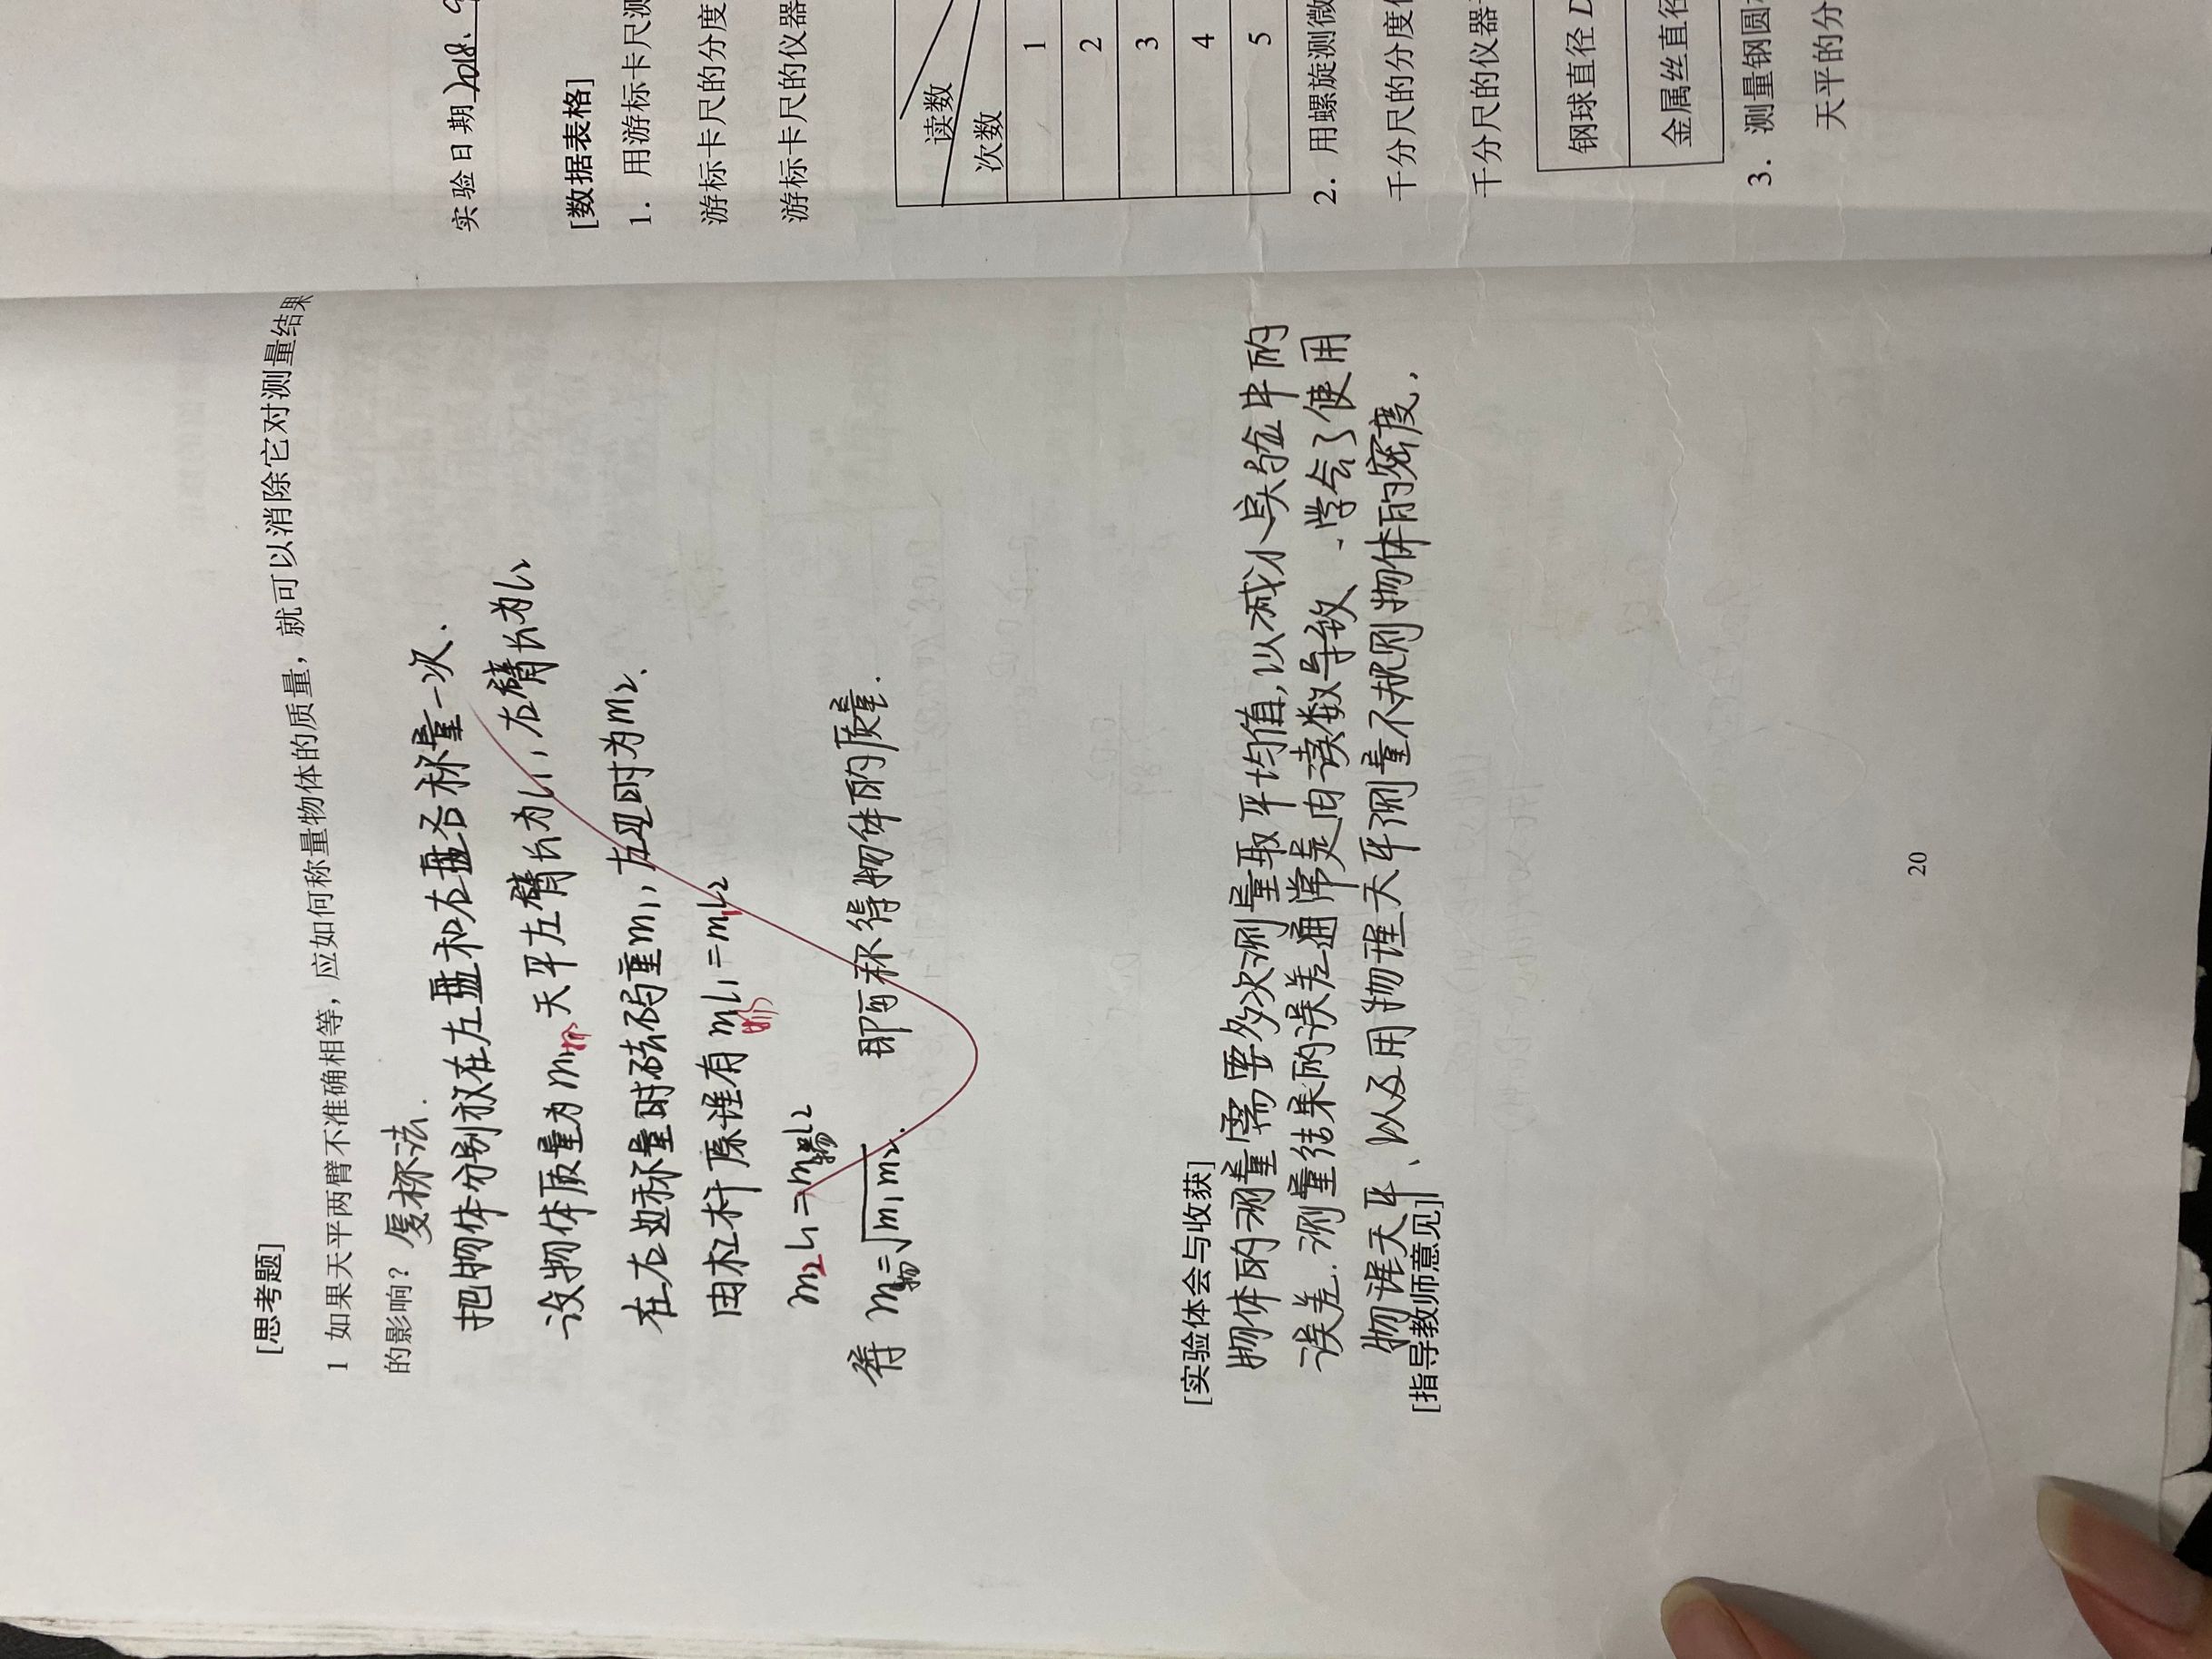 [思考题]
1 如果天平两臂不准确相等，应如何称量物体的质量，就可以消除它对测量结果
的影响？复称法.
把物体分别放在左盘和右盘各称量一次.
设物体质量为m物 天平左臂长为l1, 右臂长为l2
在右边称量时砝码重m1, 左边时为m2.
由杠杆原理有 m物l1=m1l2
m2l1=m物l2
得 m物=√m1m2. 即可称得物体的质量.
[实验体会与收获]
物体的测量需要多次测量取平均值,以减小实验中的
误差.测量结果的误差通常是由读数导致 .学会了使用
物理天平、以及用物理天平测量不规则物体的密度.
[指导教师意见]
20
实验日期2018.9
[数据表格]
1．用游标卡尺测
游标卡尺的分度
游标卡尺的仪器
读数
次数
1
2
3
4
5
2．用螺旋测微
千分尺的分度值
千分尺的仪器
钢球直径 D
金属丝直径
3．测量钢圆
天平的分